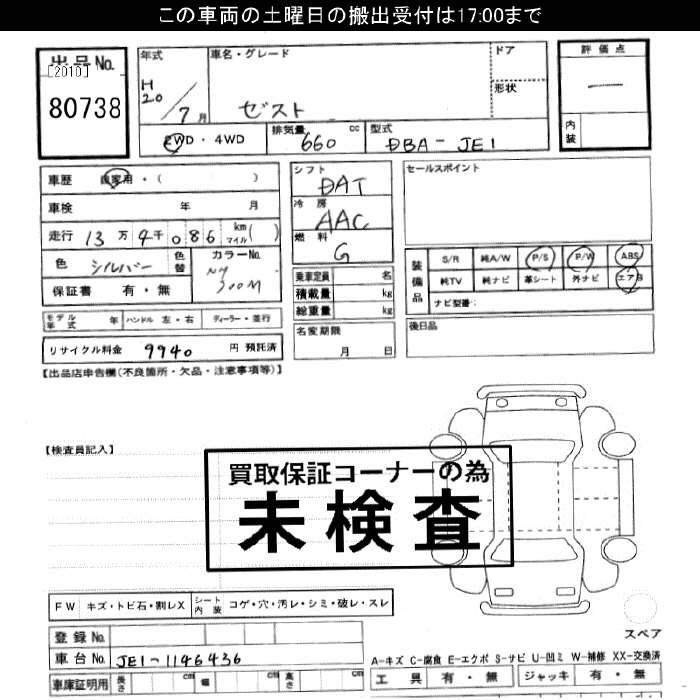 この車両の土曜日の搬出受付は17:00まで
出品No.
[2010]
80738
年式
H20/7月
車名・グレード
ゼスト
ドア
形状
評価点
内装
2WD・4WD
排気量 660 cc
型式 DBA-JE1
車歴 自家用・( )
車検 年 月
走行 13万4千086 km(マイル)
色 シルバー 色替
カラーNo. NH700M
保証書 有・無
シフト DAT
冷房 AAC
燃料 G
乗車定員 名
積載量 kg
総重量 kg
名変期限
月 日
セールスポイント
装備品
S/R 純A/W P/S P/W ABS
純TV 純ナビ 革シート 外ナビ エアB
ナビ型番:
後日品
モデル年式 年 ハンドル 左・右 ディーラー・並行
リサイクル料金 9940 円 預託済
【出品店申告欄(不良箇所・欠品・注意事項等)】
【検査員記入】
買取保証コーナーの為
未検査
FW キズ・トビ石・割レX シート内装 コゲ・穴・汚レ・シミ・破レ・スレ
登録No.
車台No. JE1-1146436
車庫証明用 長さ cm 幅 cm 高さ cm
スペア
A-キズ C-腐食 E-エクボ S-サビ U-凹ミ W-補修 XX-交換済
工具 有・無 ジャッキ 有・無